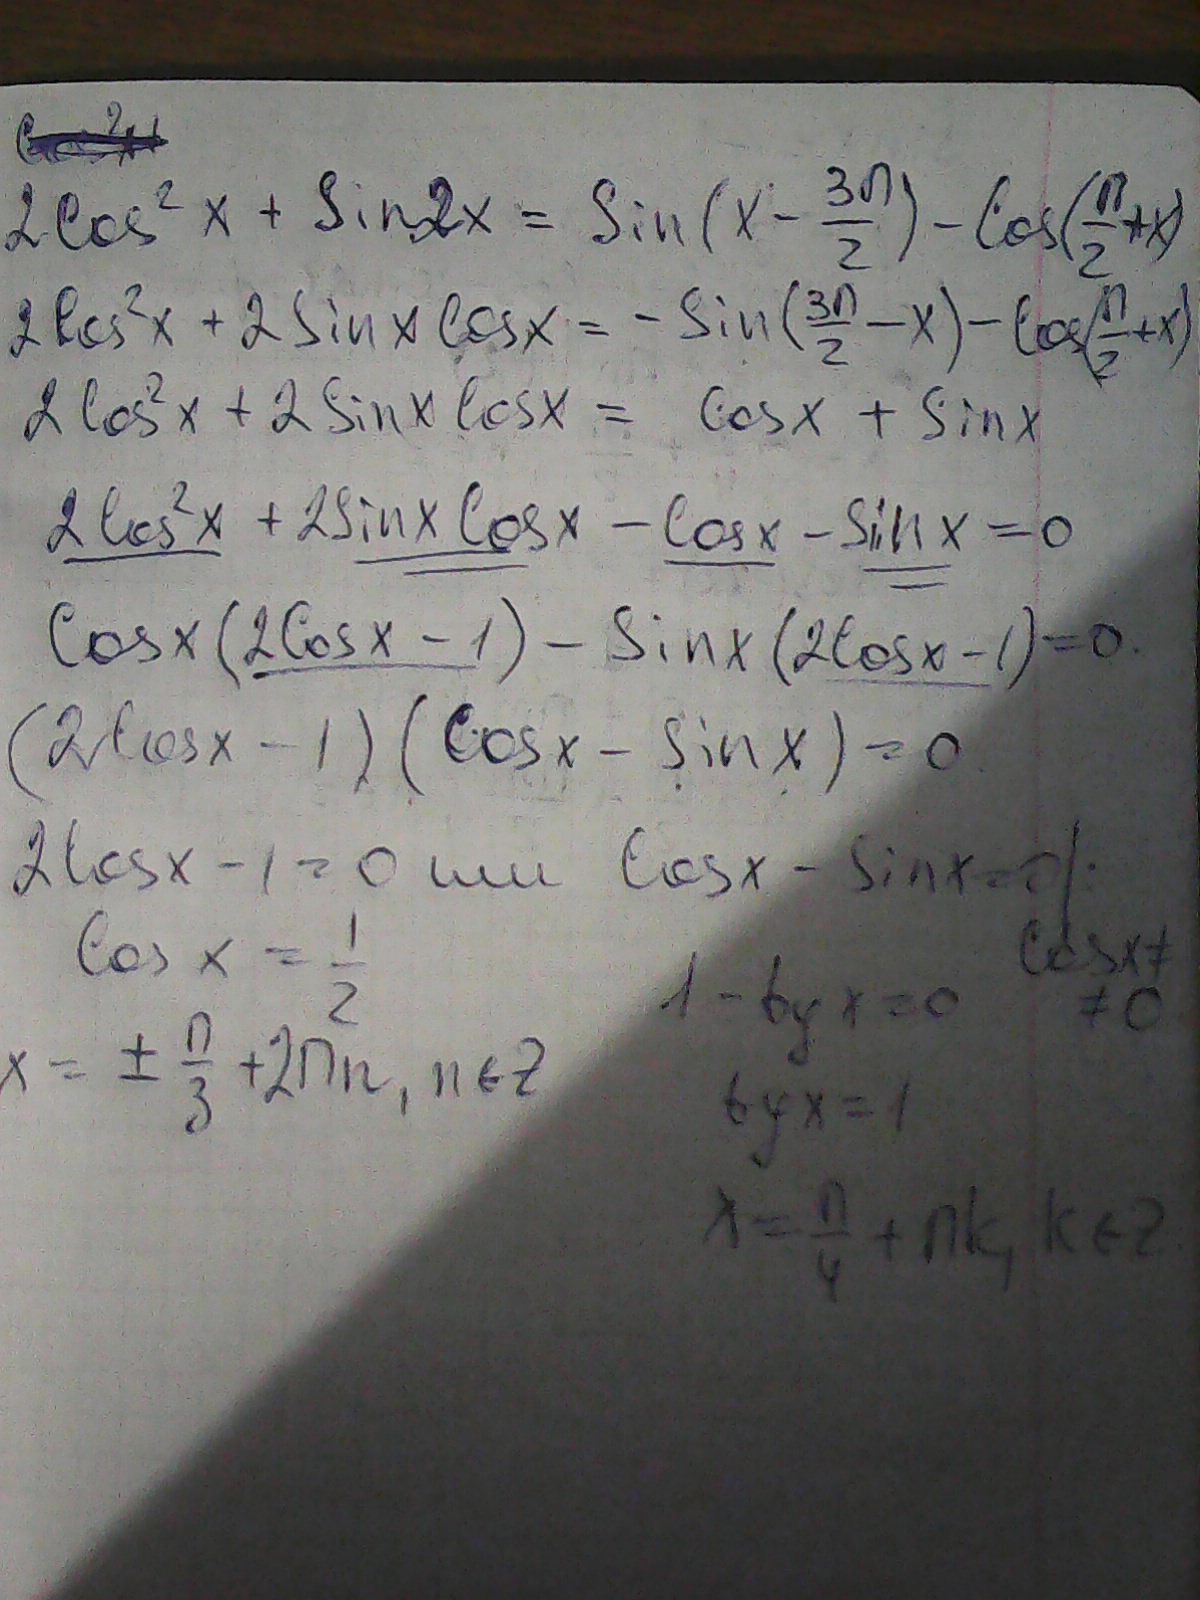 2Cos²x + Sin2x = Sin(x - 3π/2) - Cos(π/2 + x)
2Cos²x + 2Sinx Cosx = -Sin(3π/2 - x) - Cos(π/2 + x)
2Cos²x + 2Sinx Cosx = Cosx + Sinx
2Cos²x + 2Sinx Cosx - Cosx - Sinx = 0
Cosx(2Cosx - 1) - Sinx(2Cosx - 1) = 0.
(2Cosx - 1)(Cosx - Sinx) = 0
2Cosx - 1 = 0 или Cosx - Sinx = 0 | :
Cosx ≠
Cos x = 1/2
1 - tgx = 0 ≠ 0
x = ± π/3 + 2πn, n ∈ Z
tgx = 1
x = π/4 + πk, k ∈ Z